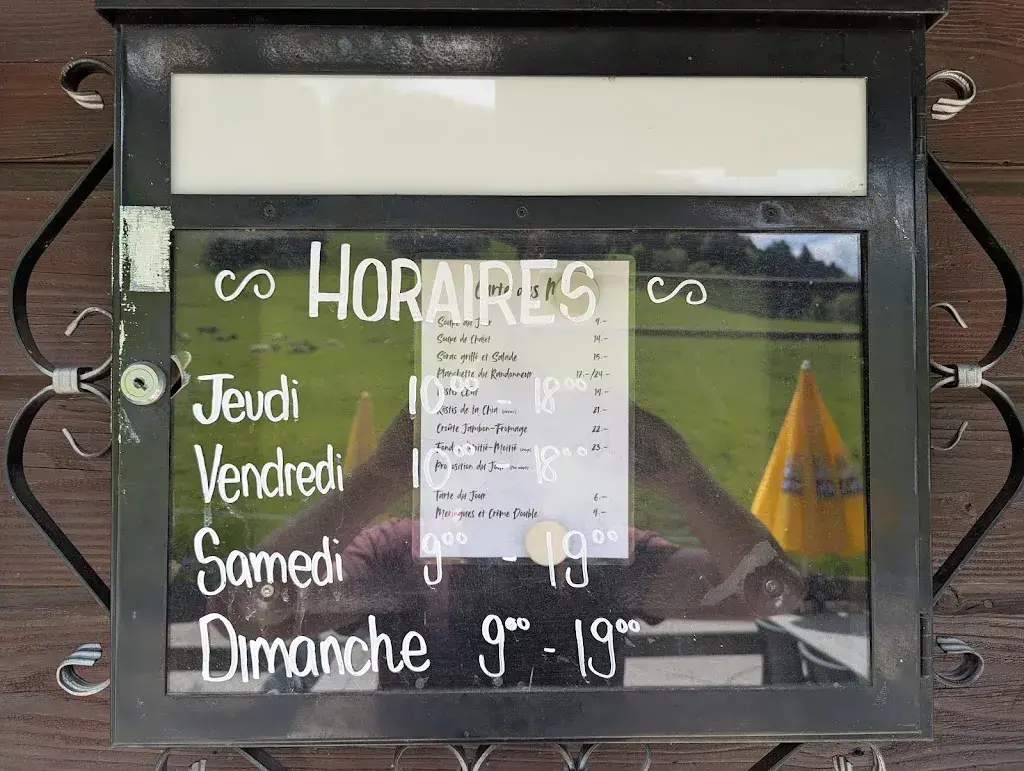 HORAIRES
Jeudi 10⁰⁰ - 18⁰⁰
Vendredi 10⁰⁰ - 18⁰⁰
Samedi 9⁰⁰ - 19⁰⁰
Dimanche 9⁰⁰ - 19⁰⁰
Carte des
Soupe du Jour 9.-
Soupe de Chalet 14.-
Sérac grillé et Salade 15.-
Planchette du Randonneur 17.-/24.-
Röstis 19.-
Röstis de la Chia 21.-
Croûte Jambon-Fromage 22.-
Moitié-Moitié 23.-
Proposition du Jour
Tarte du Jour 6.-
Meringues et Crème Double 9.-